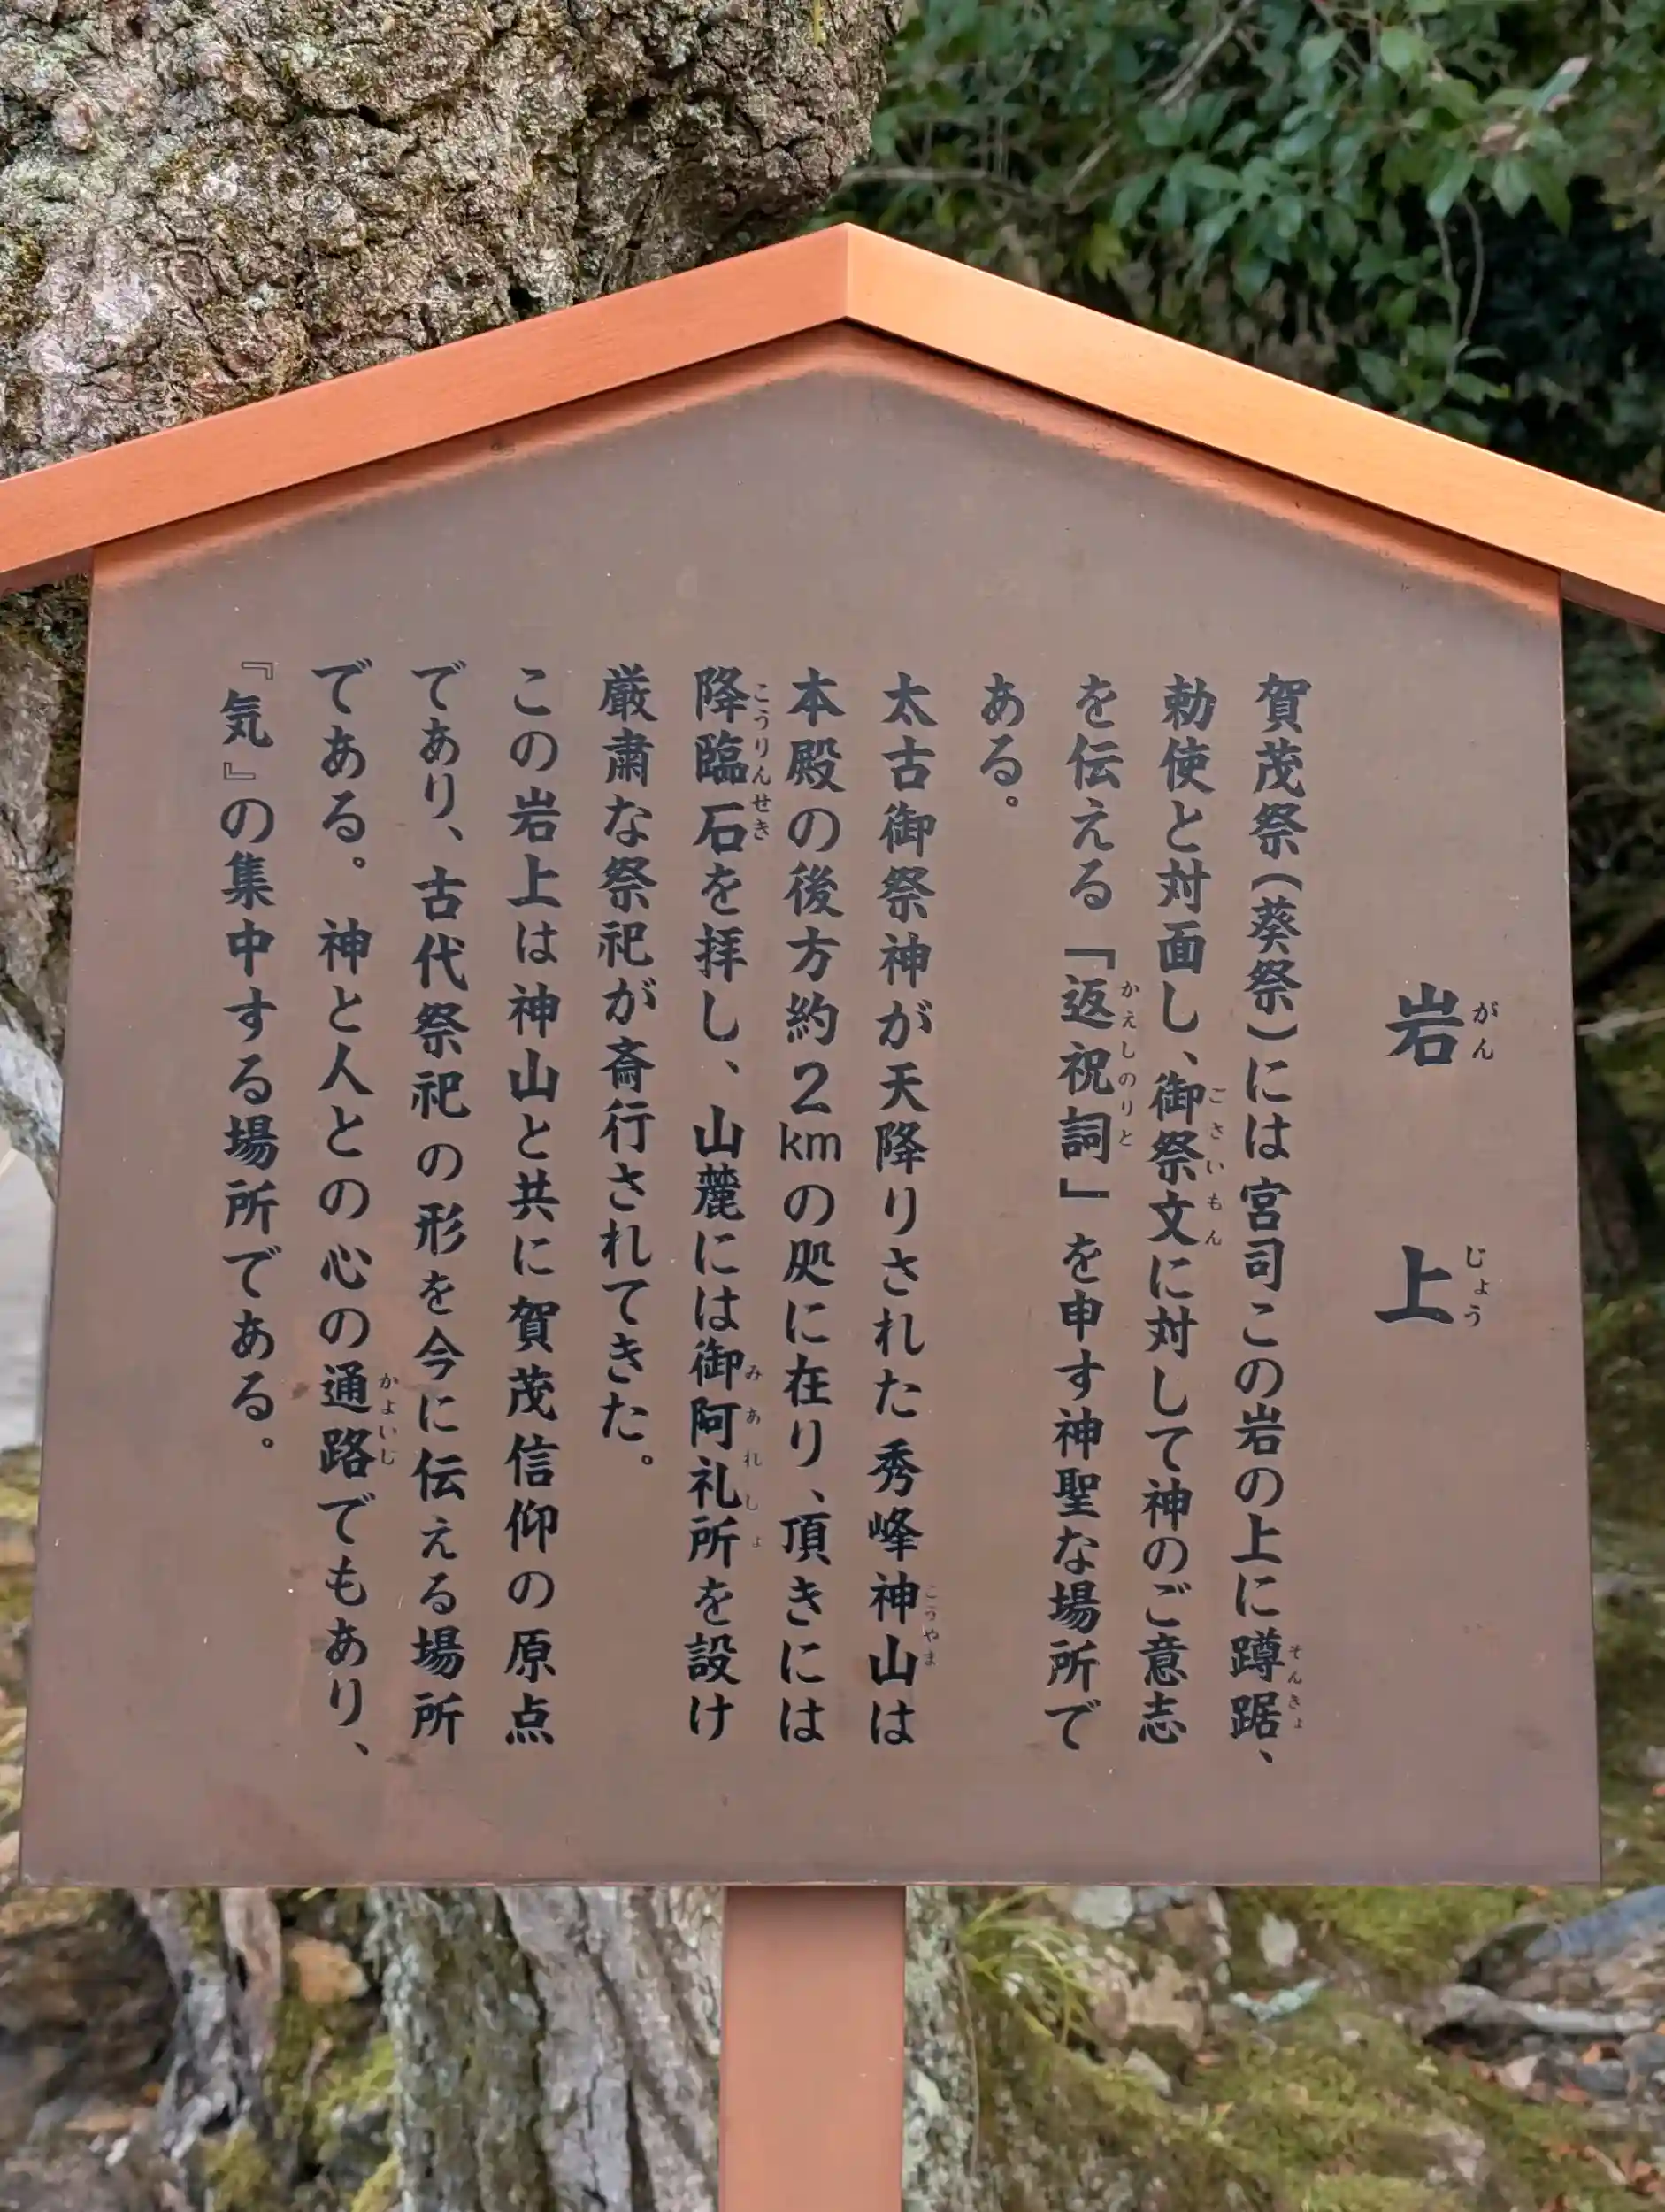 岩上
がんじょう
賀茂祭(葵祭)には宮司この岩の上に蹲踞、
そんきょ
勅使と対面し、御祭文に対して神のご意志
ごさいもん
を伝える「返祝詞」を申す神聖な場所で
かえしのりと
ある。
太古御祭神が天降りされた秀峰神山は
こうやま
本殿の後方約2kmの処に在り、頂きには
降臨石を拝し、山麓には御阿礼所を設け
こうりんせき みあれしょ
厳粛な祭祀が斎行されてきた。
この岩上は神山と共に賀茂信仰の原点
であり、古代祭祀の形を今に伝える場所
である。神と人との心の通路でもあり、
かよいじ
『気』の集中する場所である。